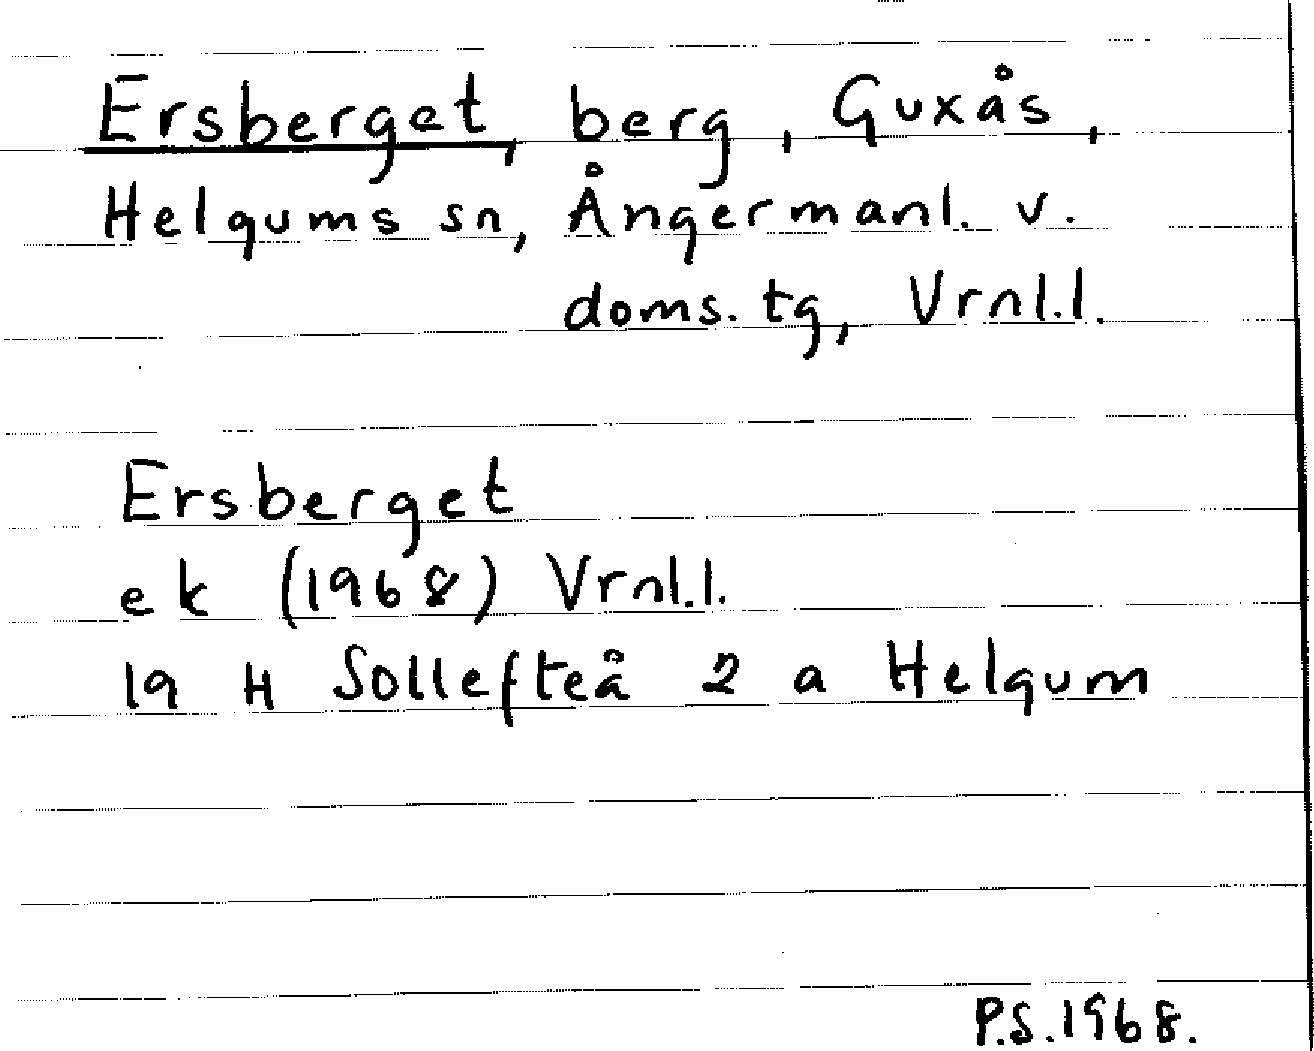 Ersberget, berg, Guxås,
Helgums sn, Ångermanl. v.
doms. tg, Vrnl.l.
Ersberget
ek (1968) Vrnl.l.
19 H Sollefteå 2 a Helgum
P.S.1968.